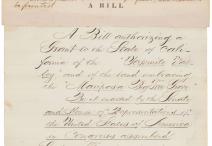 be printed
A BILL
A Bill authorizing a
Grant to the State of Cali-
fornia of the "Yosemite Val-
ley" and of the land embracing
the "Mariposa Big Tree Grove"
Be it enacted by the Senate
and House of Representatives of
the United States of America
in Congress assembled